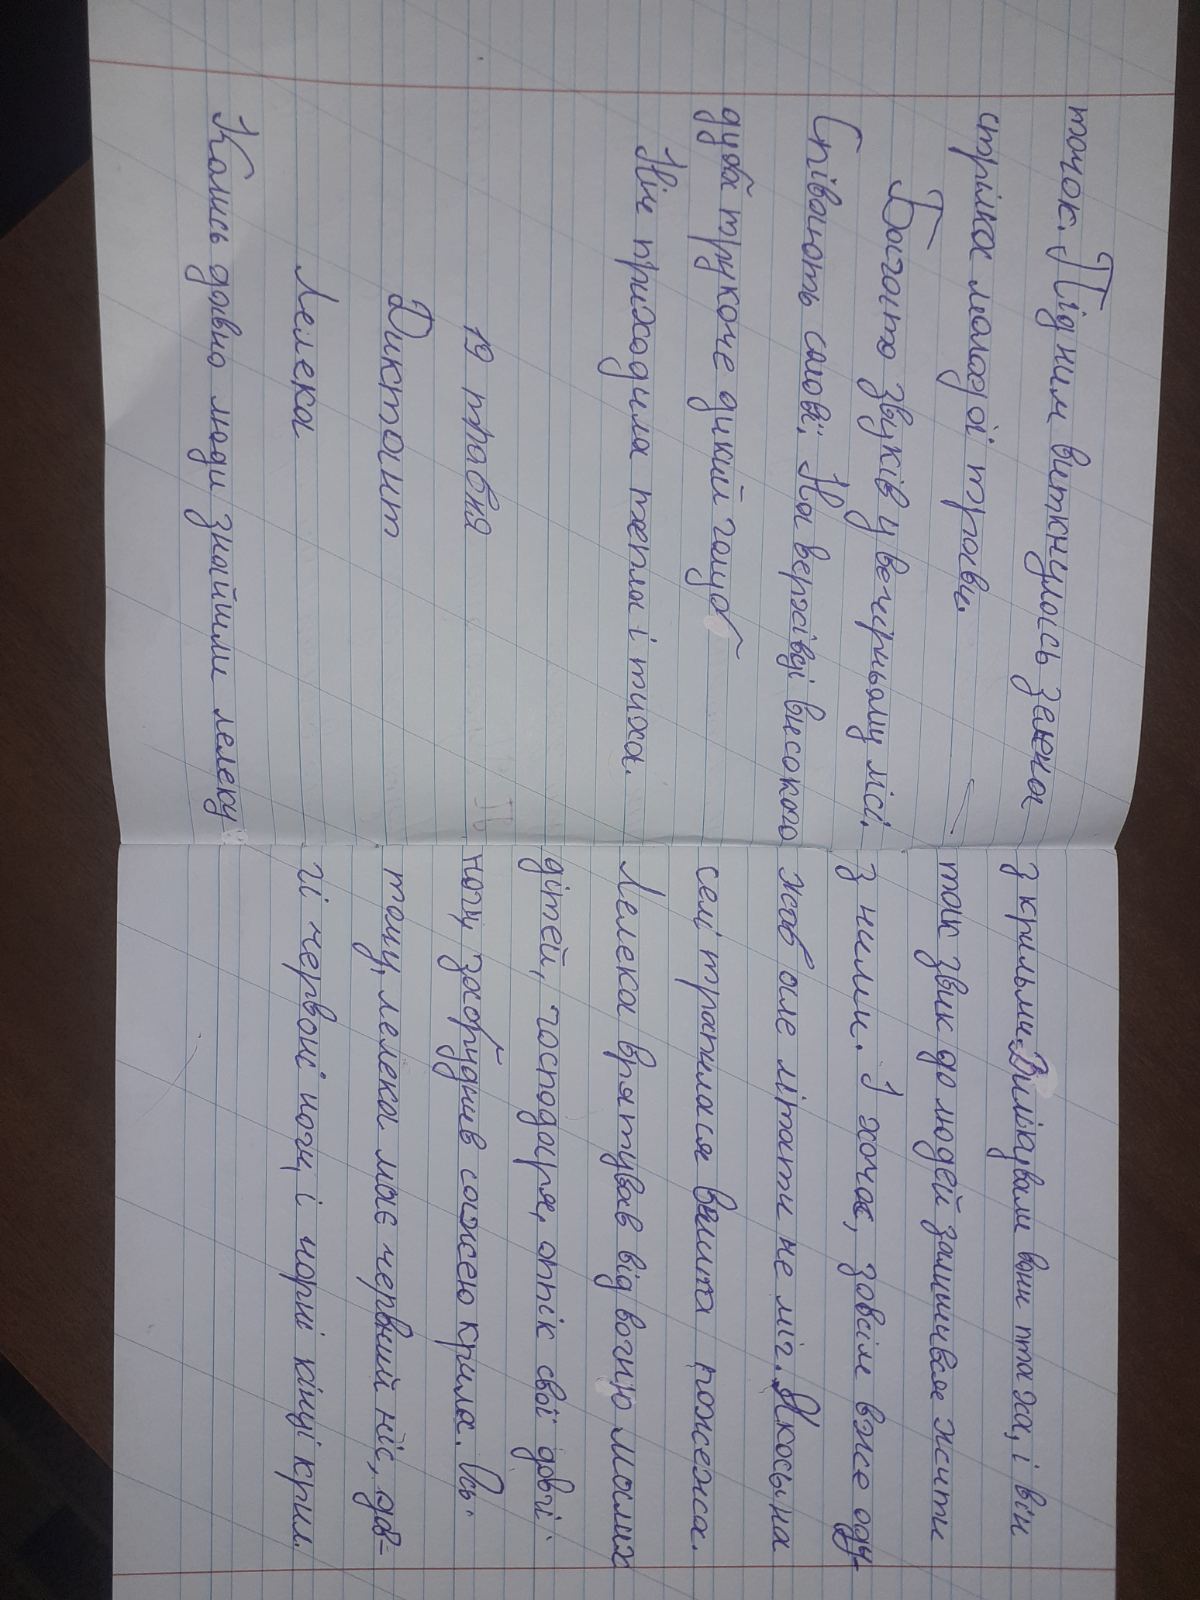 точок. Під ним виткнулась зелена
стрілка молодої трави.
Багато звуків у вечірньому лісі.
Співають солов'ї. На верхівці високого
дуба туркоче дикий голуб
Ніч приходила тепла і тиха.
19 травня
Диктант
Лелека
Колись давно люди знайшли лелеку
з крильми. Вилікували вони птаха, і він
так звик до людей залишився жити
з ними. І хоча, зовсім вже оду-
жав але літати не міг. Якось на
селі трапилася пожежа.
Лелека врятував від вогню малих
дітей, господаря, опік свої довгі
ноги, забруднив сажею крила. Ось
тому, лелека має червний ніс, дов-
гі червоні ноги, і чорні кінці крил.